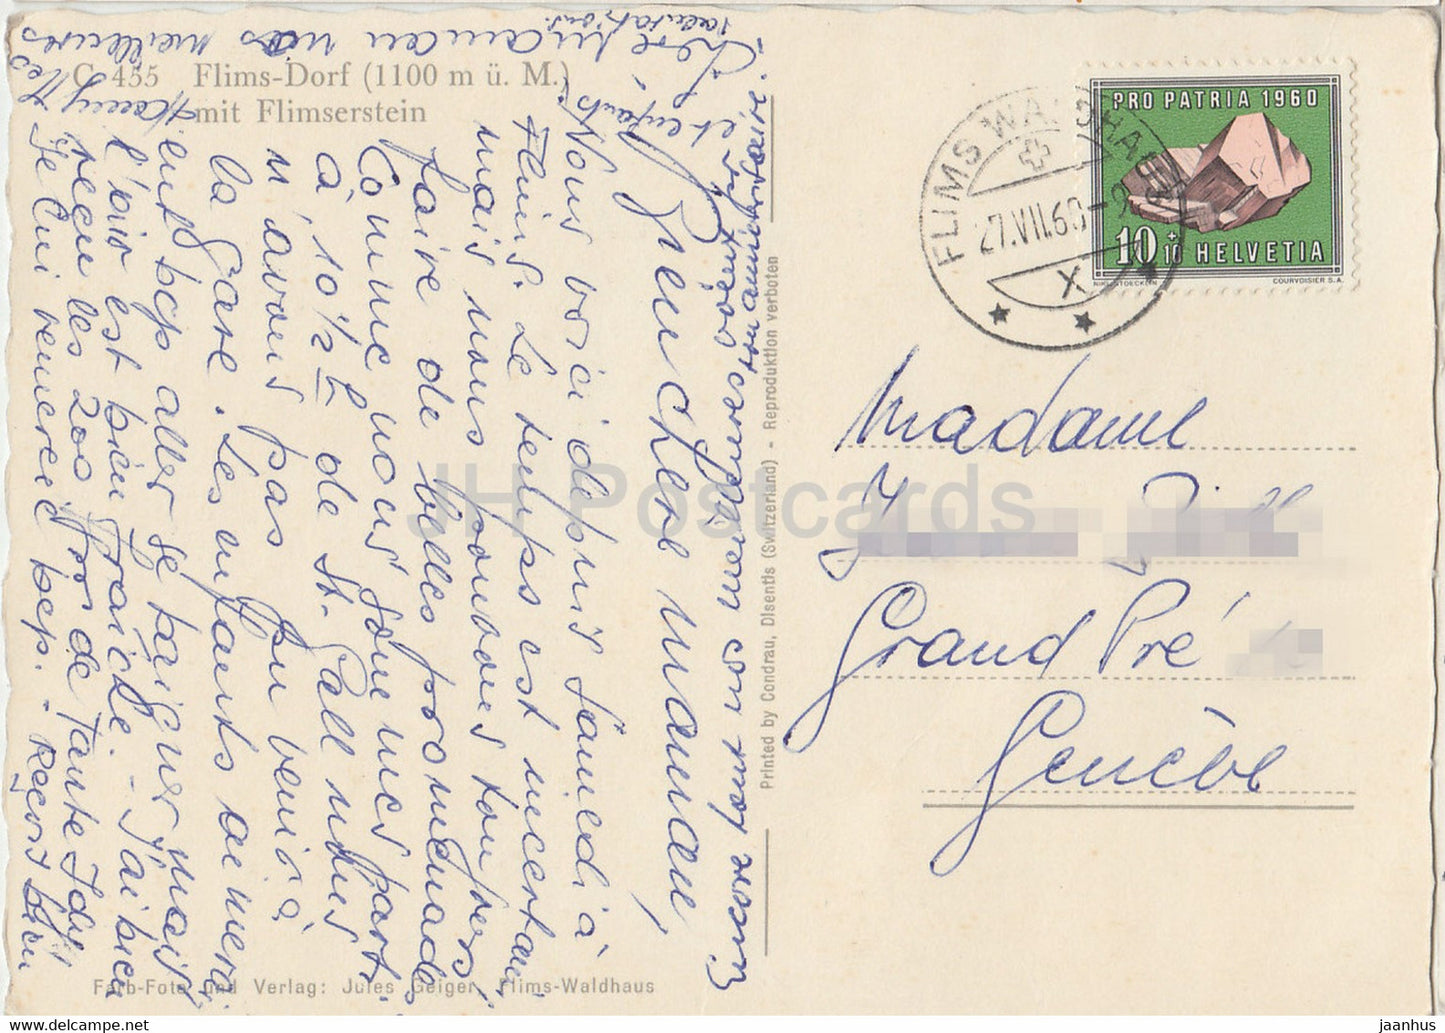 C 455 Flims-Dorf (1100 m ü. M.)
mit Flimserstein
Bien chère maman,
Nous voici depuis samedi à
Flims. Le temps est incertain
mais nous pouvons toujours
faire de belles promenades
Comme nous sommes parti
à 10 1/2 h de St. Gall nous
n'avons pas pu venir à
la gare. Les enfants aimerai
ent bcp aller se baigner mais
l'air est bien fraîche. - J'ai bien
reçu les 200 frs de Tante Idy
Je t'en remercie bcp. - Reçois bien
chère maman nos meilleures
salutations.
et enfants
Encore tous nos meilleurs voeux pour
ton anniversaire.
Farb-Foto und Verlag: Jules Geiger, Flims-Waldhaus
Printed by Condrau, Disentis (Switzerland) - Reproduktion verboten
PRO PATRIA 1960
10+10 HELVETIA
COURVOISIER S.A.
FLIMS WALDHAUS
27.VII.60-9
X
Madame
Grand Pré
Genève
JH Postcards
jaanhus
www.delcampe.net